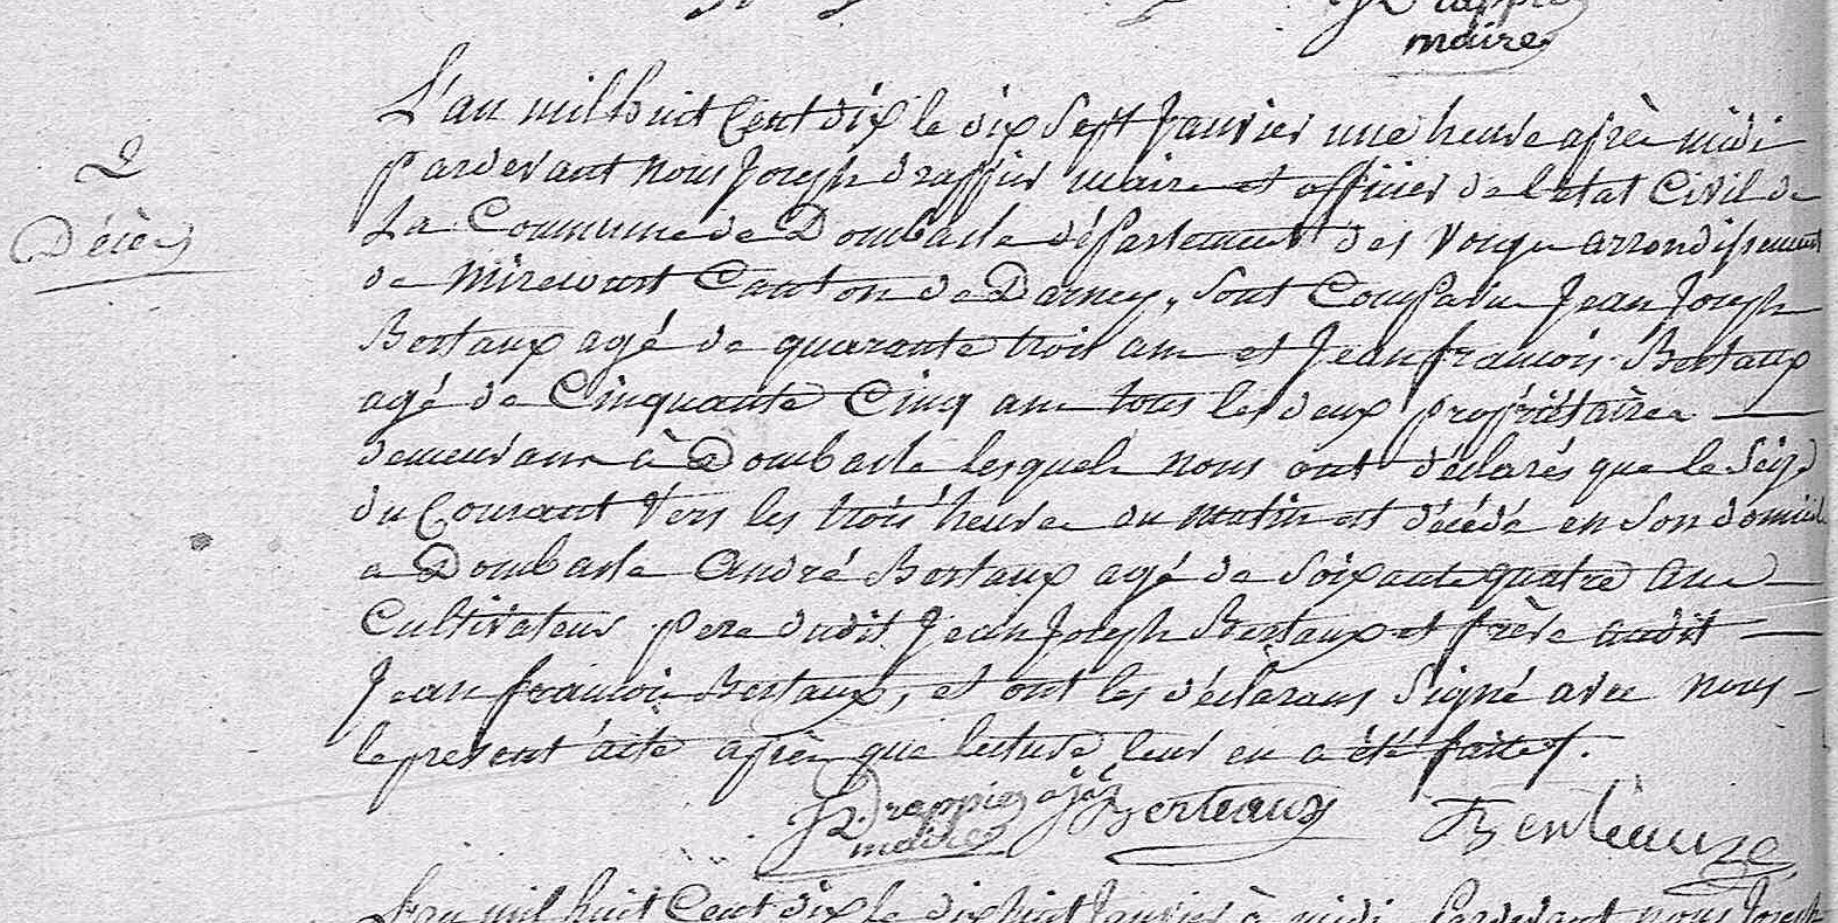 maire
L'an mil huit Cent dix le dix Sept Janvier une heure après midi
2
pardevant nous Joseph Drappier maire et officier de l'état Civil de
Décès
La Commune de Dombasle département des Vosges arrondissement
de Mirecourt Canton de Darney, sont Comparu Jean Joseph
Bertaux agé de quarante trois ans et Jean francois Bertaux
agé de Cinquante Cinq ans tous les deux propriétaires
demeurans à Dombasle lesquels nous ont déclarés que le Seize
du Courant Vers les trois heures du matin est décédé en son domicile
a Dombasle André Bertaux agé de Soixante quatre ans
Cultivateur pere dudit Jean Joseph Bertaux et frère audit
Jean francois Bertaux, et ont les déclarans Signé avec nous
le present acte après que lecture leur en a été faite.
J Drappier Berteaux Berteauxe
maire
L'an mil huit Cent dix le dix huit Janvier à midi Pardevant nous Joseph